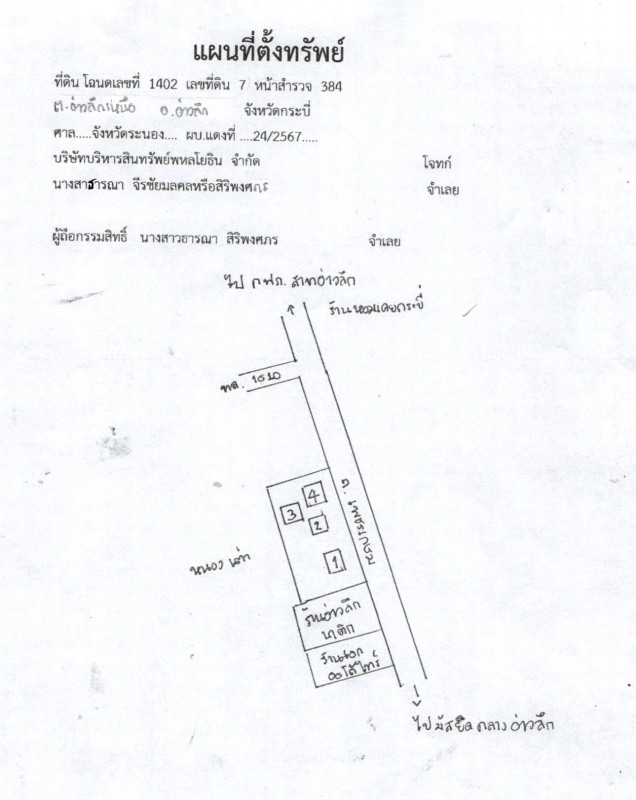 แผนที่ตั้งทรัพย์
ที่ดิน โฉนดเลขที่ 1402 เลขที่ดิน 7 หน้าสำรวจ 384
ต.อ่าวลึกเหนือ อ.อ่าวลึก จังหวัดกระบี่
ศาล.....จังหวัดระนอง.... ผบ.แดงที่ ....24/2567.....
บริษัทบริหารสินทรัพย์พหลโยธิน จำกัด โจทก์
นางสาธารณา จีรชัยมลคลหรือสิริพงศภร จำเลย
ผู้ถือกรรมสิทธิ์ นางสาวธารณา สิริพงศภร จำเลย
ไป กฟภ. สาขาอ่าวลึก
ร้านหอมเคยกระบี่
ทล. 1520
4
3
2
1
ถ. เพชรเกษม
หนอง
ร้านอ่าวลึก
นาฬิกา
ร้าน
ไปมัสยิดกลางอ่าวลึก